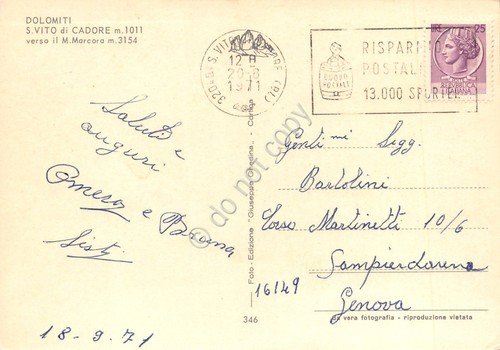 DOLOMITI
S. VITO di CADORE m. 1011
verso il M. Marcora m. 3154
32046 S. VITO DI CADORE (BL)
12
1971
RISPARMIO
POSTALE
13.000 SPORTELLI
BUONO
POSTALE
25
REPUBBLICA
ITALIANA
Saluti e
auguri
e
Sisty
18 - 9. 71
Foto - Edizione Giuseppe Ghedina - Cortina
346
© do not copy
Gent.mi Sigg.
Bartolini
Corso Martinetti 10/6
Sampierdarena
Genova
16149
vera fotografia - riproduzione vietata